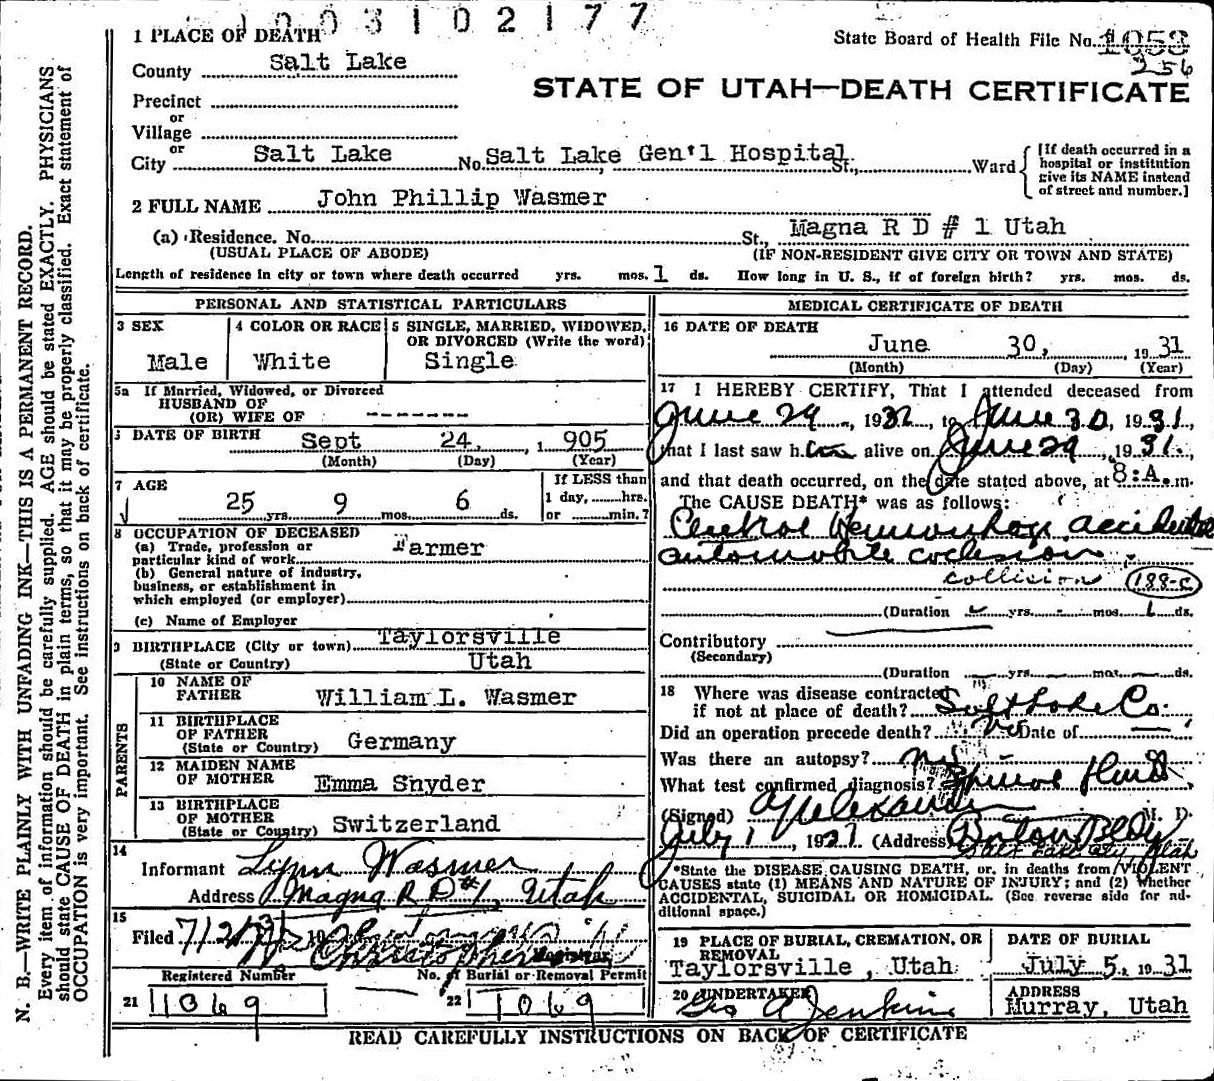 1003102177
1 PLACE OF DEATH
State Board of Health File No. 1053
256
County Salt Lake
STATE OF UTAH—DEATH CERTIFICATE
Precinct
or
Village
or
City Salt Lake No. Salt Lake Gen'l Hospital St., Ward
[If death occurred in a hospital or institution give its NAME instead of street and number.]
2 FULL NAME John Phillip Wasmer
(a) Residence. No. St., Magna R D # 1 Utah
(USUAL PLACE OF ABODE) (IF NON-RESIDENT GIVE CITY OR TOWN AND STATE)
Length of residence in city or town where death occurred yrs. mos. 1 ds. How long in U. S., if of foreign birth? yrs. mos. ds.
PERSONAL AND STATISTICAL PARTICULARS
3 SEX
Male
4 COLOR OR RACE
White
5 SINGLE, MARRIED, WIDOWED,
OR DIVORCED (Write the word)
Single
5a If Married, Widowed, or Divorced
HUSBAND OF
(OR) WIFE OF -------
DATE OF BIRTH Sept 24, 1, 905
(Month) (Day) (Year)
7 AGE
25 yrs. 9 mos. 6 ds.
If LESS than
1 day, hrs.
or min.?
8 OCCUPATION OF DECEASED
(a) Trade, profession or
particular kind of work Farmer
(b) General nature of industry,
business, or establishment in
which employed (or employer)
(c) Name of Employer
9 BIRTHPLACE (City or town) Taylorsville
(State or Country) Utah
PARENTS
10 NAME OF
FATHER William L. Wasmer
11 BIRTHPLACE
OF FATHER
(State or Country) Germany
12 MAIDEN NAME
OF MOTHER Emma Snyder
13 BIRTHPLACE
OF MOTHER
(State or Country) Switzerland
14
Informant Lynn Wasmer
Address Magna R D #1, Utah
15
Filed 7/2/31
Registrar
Registered Number No. of Burial or Removal Permit
21 1069 22 1069
MEDICAL CERTIFICATE OF DEATH
16 DATE OF DEATH
June 30, 1931
(Month) (Day) (Year)
17 I HEREBY CERTIFY, That I attended deceased from
June 29, 1931, to June 30, 1931,
that I last saw him alive on June 29, 1931,
and that death occurred, on the date stated above, at 8:A.m.
The CAUSE DEATH* was as follows:
Hemorrhage accidental
automobile
collision 188-c
(Duration yrs. - mos. 1 ds.
Contributory
(Secondary)
(Duration yrs. mos. ds.
18 Where was disease contracted
if not at place of death? Salt Lake Co.
Did an operation precede death? no Date of
Was there an autopsy? no
What test confirmed diagnosis? Spinal
(Signed) Alexander M. D.
July 1, 19 (Address) Boston Bldg
Salt Lake City Utah
*State the DISEASE CAUSING DEATH, or, in deaths from VIOLENT
CAUSES state (1) MEANS AND NATURE OF INJURY; and (2) whether
ACCIDENTAL, SUICIDAL OR HOMICIDAL. (See reverse side for ad-
ditional space.)
19 PLACE OF BURIAL, CREMATION, OR
REMOVAL
Taylorsville, Utah
DATE OF BURIAL
July 5, 1931
20 UNDERTAKER
Geo A Jenkins
ADDRESS
Murray, Utah
READ CAREFULLY INSTRUCTIONS ON BACK OF CERTIFICATE
N. B.—WRITE PLAINLY WITH UNFADING INK—THIS IS A PERMANENT RECORD.
Every item of information should be carefully supplied. AGE should be stated EXACTLY. PHYSICIANS
should state CAUSE OF DEATH in plain terms, so that it may be properly classified. Exact statement of
OCCUPATION is very important. See instructions on back of certificate.